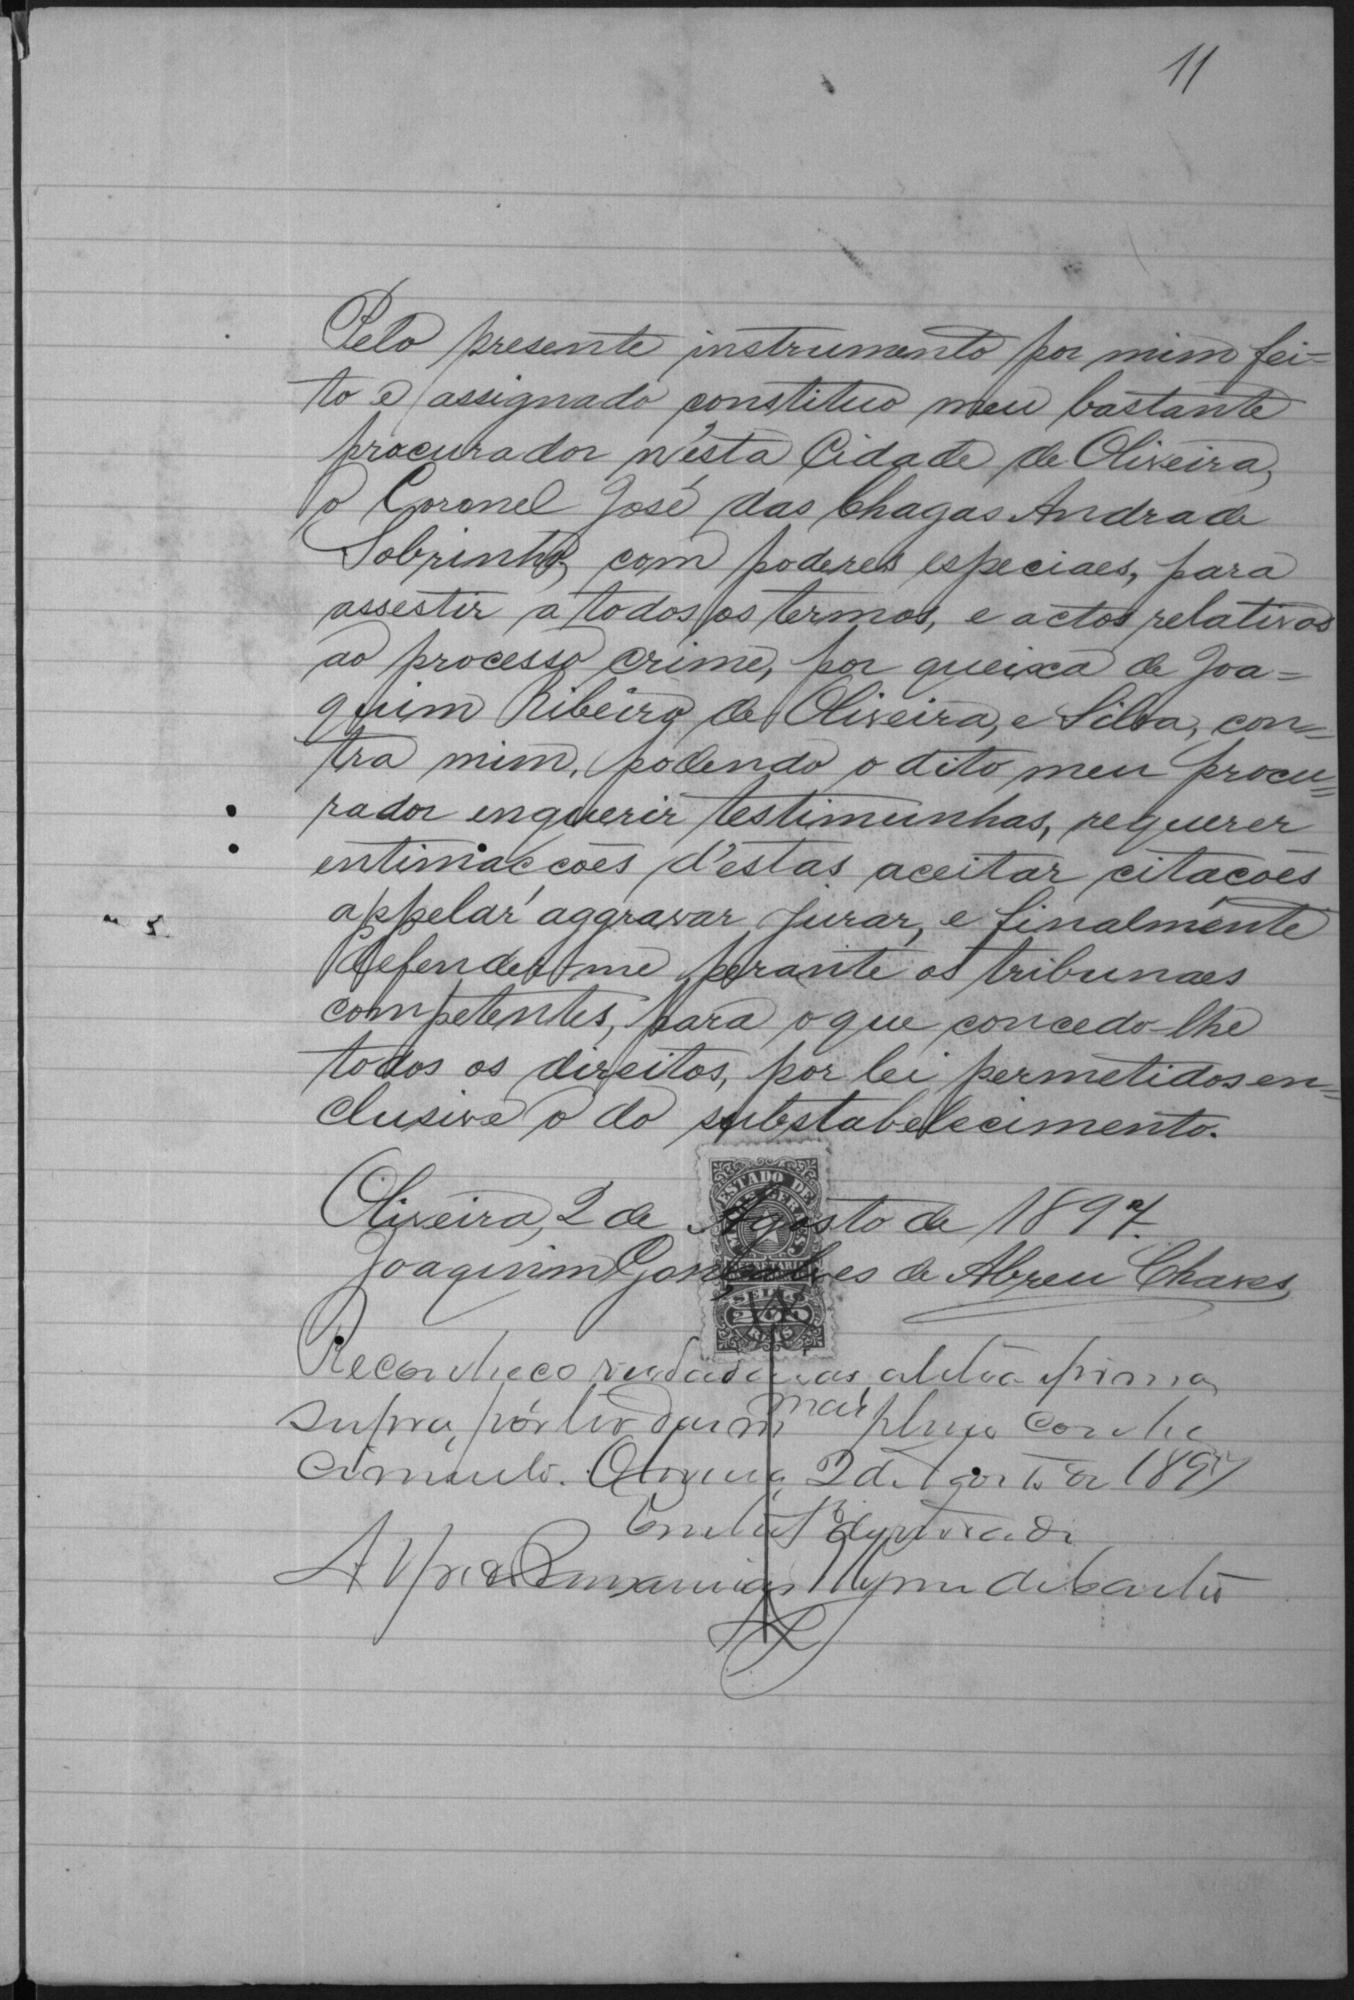 11
Pelo presente instrumento por mim fei=
to e assignado constituo meu bastante
procurador n'esta Cidade de Oliveira,
o Coronel José das Chagas Andrade
Sobrinho, com poderes especiaes, para
assestir a todos os termos, e actos relativos
ao processo crime, por queixa de Joa=
quim Ribeiro de Oliveira, e Silva, con=
tra mim, podendo o dito meu procu=
rador enquerir testimunhas, requerer
entimacções d'estas aceitar citações
appelar aggravar jurar, e finalmente
defender me perante os tribunaes
competentes, para o que concedo-lhe
todos os direitos, por lei permetidos en=
clusive o do substabelecimento.
Oliveira, 2 de Agosto de 1897.
Joaquim Gonçalves de Abreu Chaves
ESTADO DE
MINAS GERAES
SELLO
200
REIS
Reconheço verdadeiras a letra e firma
supra, por ter dam mais pleno conhe
cimento. Oliveira, 2 de Agosto de 1897
Em de verdade